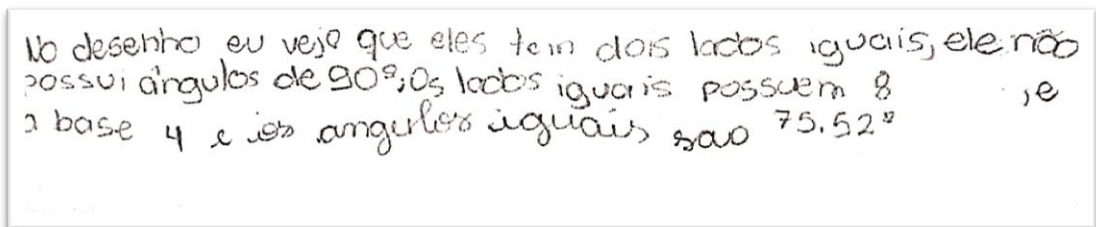 No desenho eu vejo que eles tem dois lados iguais, ele não
possui ângulos de 90º; Os lados iguais possuem 8 , e
a base 4 e os angulos iguais sao 75.52º